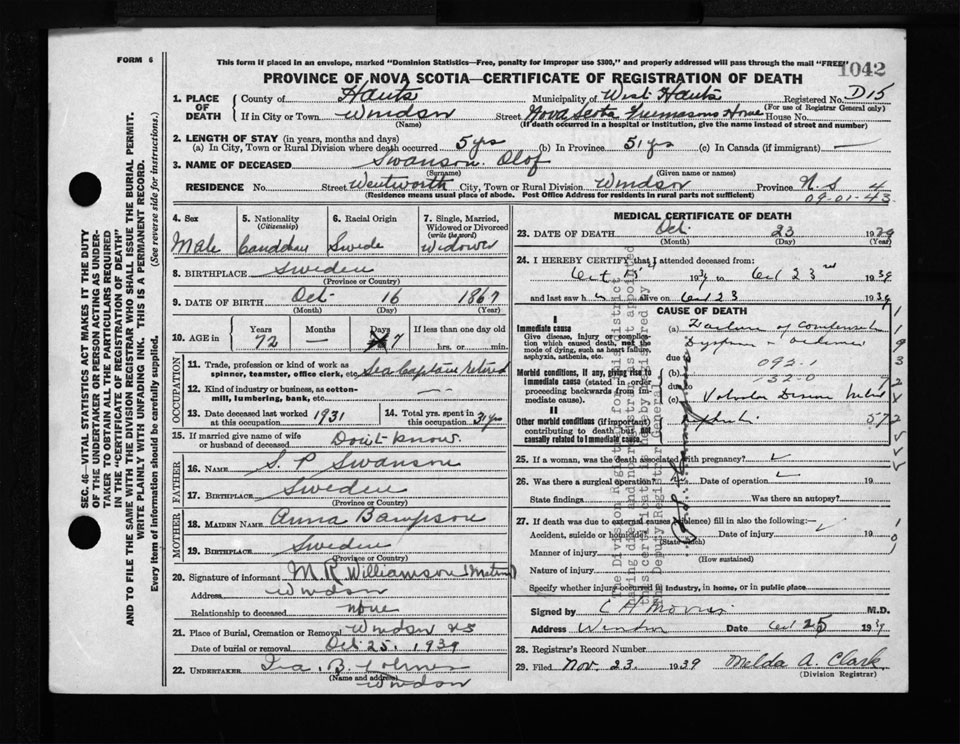 FORM 6
This form if placed in an envelope, marked "Dominion Statistics—Free, penalty for improper use $300," and properly addressed will pass through the mail "FREE"
1042
PROVINCE OF NOVA SCOTIA—CERTIFICATE OF REGISTRATION OF DEATH
1. PLACE OF DEATH
County of Hants Municipality of West Hants Registered No. D15
(For use of Registrar General only)
If in City or Town Windsor Street Nova Scotia Freemasons Home House No.
(Name) (If death occurred in a hospital or institution, give the name instead of street and number)
2. LENGTH OF STAY (in years, months and days)
(a) In City, Town or Rural Division where death occurred 5 yrs (b) In Province 51 yrs (c) In Canada (if immigrant) —
3. NAME OF DECEASED Swanson Olof
(Surname) (Given name or names)
RESIDENCE No. Street Wentworth City, Town or Rural Division Windsor Province N. S.
(Residence means usual place of abode. Post Office Address for residents in rural parts not sufficient)
4
09-01-43
4. Sex Male
5. Nationality (Citizenship) Canadian
6. Racial Origin Swede
7. Single, Married, Widowed or Divorced (write the word) Widower
8. BIRTHPLACE Sweden
(Province or Country)
9. DATE OF BIRTH Oct 16 1867
(Month) (Day) (Year)
10. AGE in Years 72 Months — Days 7 If less than one day old hrs. or min.
OCCUPATION
11. Trade, profession or kind of work as spinner, teamster, office clerk, etc. Sea Captain retired
12. Kind of industry or business, as cotton-mill, lumbering, bank, etc. —
13. Date deceased last worked at this occupation 1931
14. Total yrs. spent in this occupation 31 yrs
15. If married give name of wife or husband of deceased Don't know
FATHER
16. NAME S. P. Swanson
17. BIRTHPLACE Sweden
(Province or Country)
MOTHER
18. MAIDEN NAME Anna Bampson
19. BIRTHPLACE Sweden
(Province or Country)
20. Signature of informant M. R. Williamson (Matron)
Address Windsor
Relationship to deceased none
21. Place of Burial, Cremation or Removal Windsor NS
Date of burial or removal Oct 25, 1939
22. UNDERTAKER Ira. B.
(Name and address)
Windsor
MEDICAL CERTIFICATE OF DEATH
23. DATE OF DEATH Oct. 23 1939
(Month) (Day) (Year)
24. I HEREBY CERTIFY that I attended deceased from:
Oct 1939 to Oct 23rd 1939
and last saw h alive on Oct 23 1939
CAUSE OF DEATH
I
Immediate cause
Give disease, injury or complication which caused death, not the mode of dying, such as heart failure, asphyxia, asthenia, etc.
(a) of
due to
092-1
Morbid conditions, if any, giving rise to immediate cause (stated in order proceeding backwards from immediate cause).
(b)
132-0
(c) Valvular Disease
II
Other morbid conditions (if important) contributing to death but not causally related to immediate cause.
572
25. If a woman, was the death associated with pregnancy?
26. Was there a surgical operation? Date of operation 19
State findings Was there an autopsy?
27. If death was due to external causes (violence) fill in also the following:—
Accident, suicide or homicide? Date of injury 19
(State which)
Manner of injury
(How sustained)
Nature of injury
Specify whether injury occurred in industry, in home, or in public place
Signed by C A Morris M.D.
Address Windsor Date Oct 25 1939
28. Registrar's Record Number
29. Filed Nov. 23. 1939 Melda A. Clark
(Division Registrar)
SEC. 46—VITAL STATISTICS ACT MAKES IT THE DUTY
OF THE UNDERTAKER OR PERSON ACTING AS UNDERTAKER
TO OBTAIN ALL THE PARTICULARS REQUIRED
IN THE "CERTIFICATE OF REGISTRATION OF DEATH"
AND TO FILE THE SAME WITH THE DIVISION REGISTRAR WHO SHALL ISSUE THE BURIAL PERMIT.
WRITE PLAINLY WITH UNFADING INK. THIS IS A PERMANENT RECORD.
Every item of information should be carefully supplied. (See reverse side for instructions.)